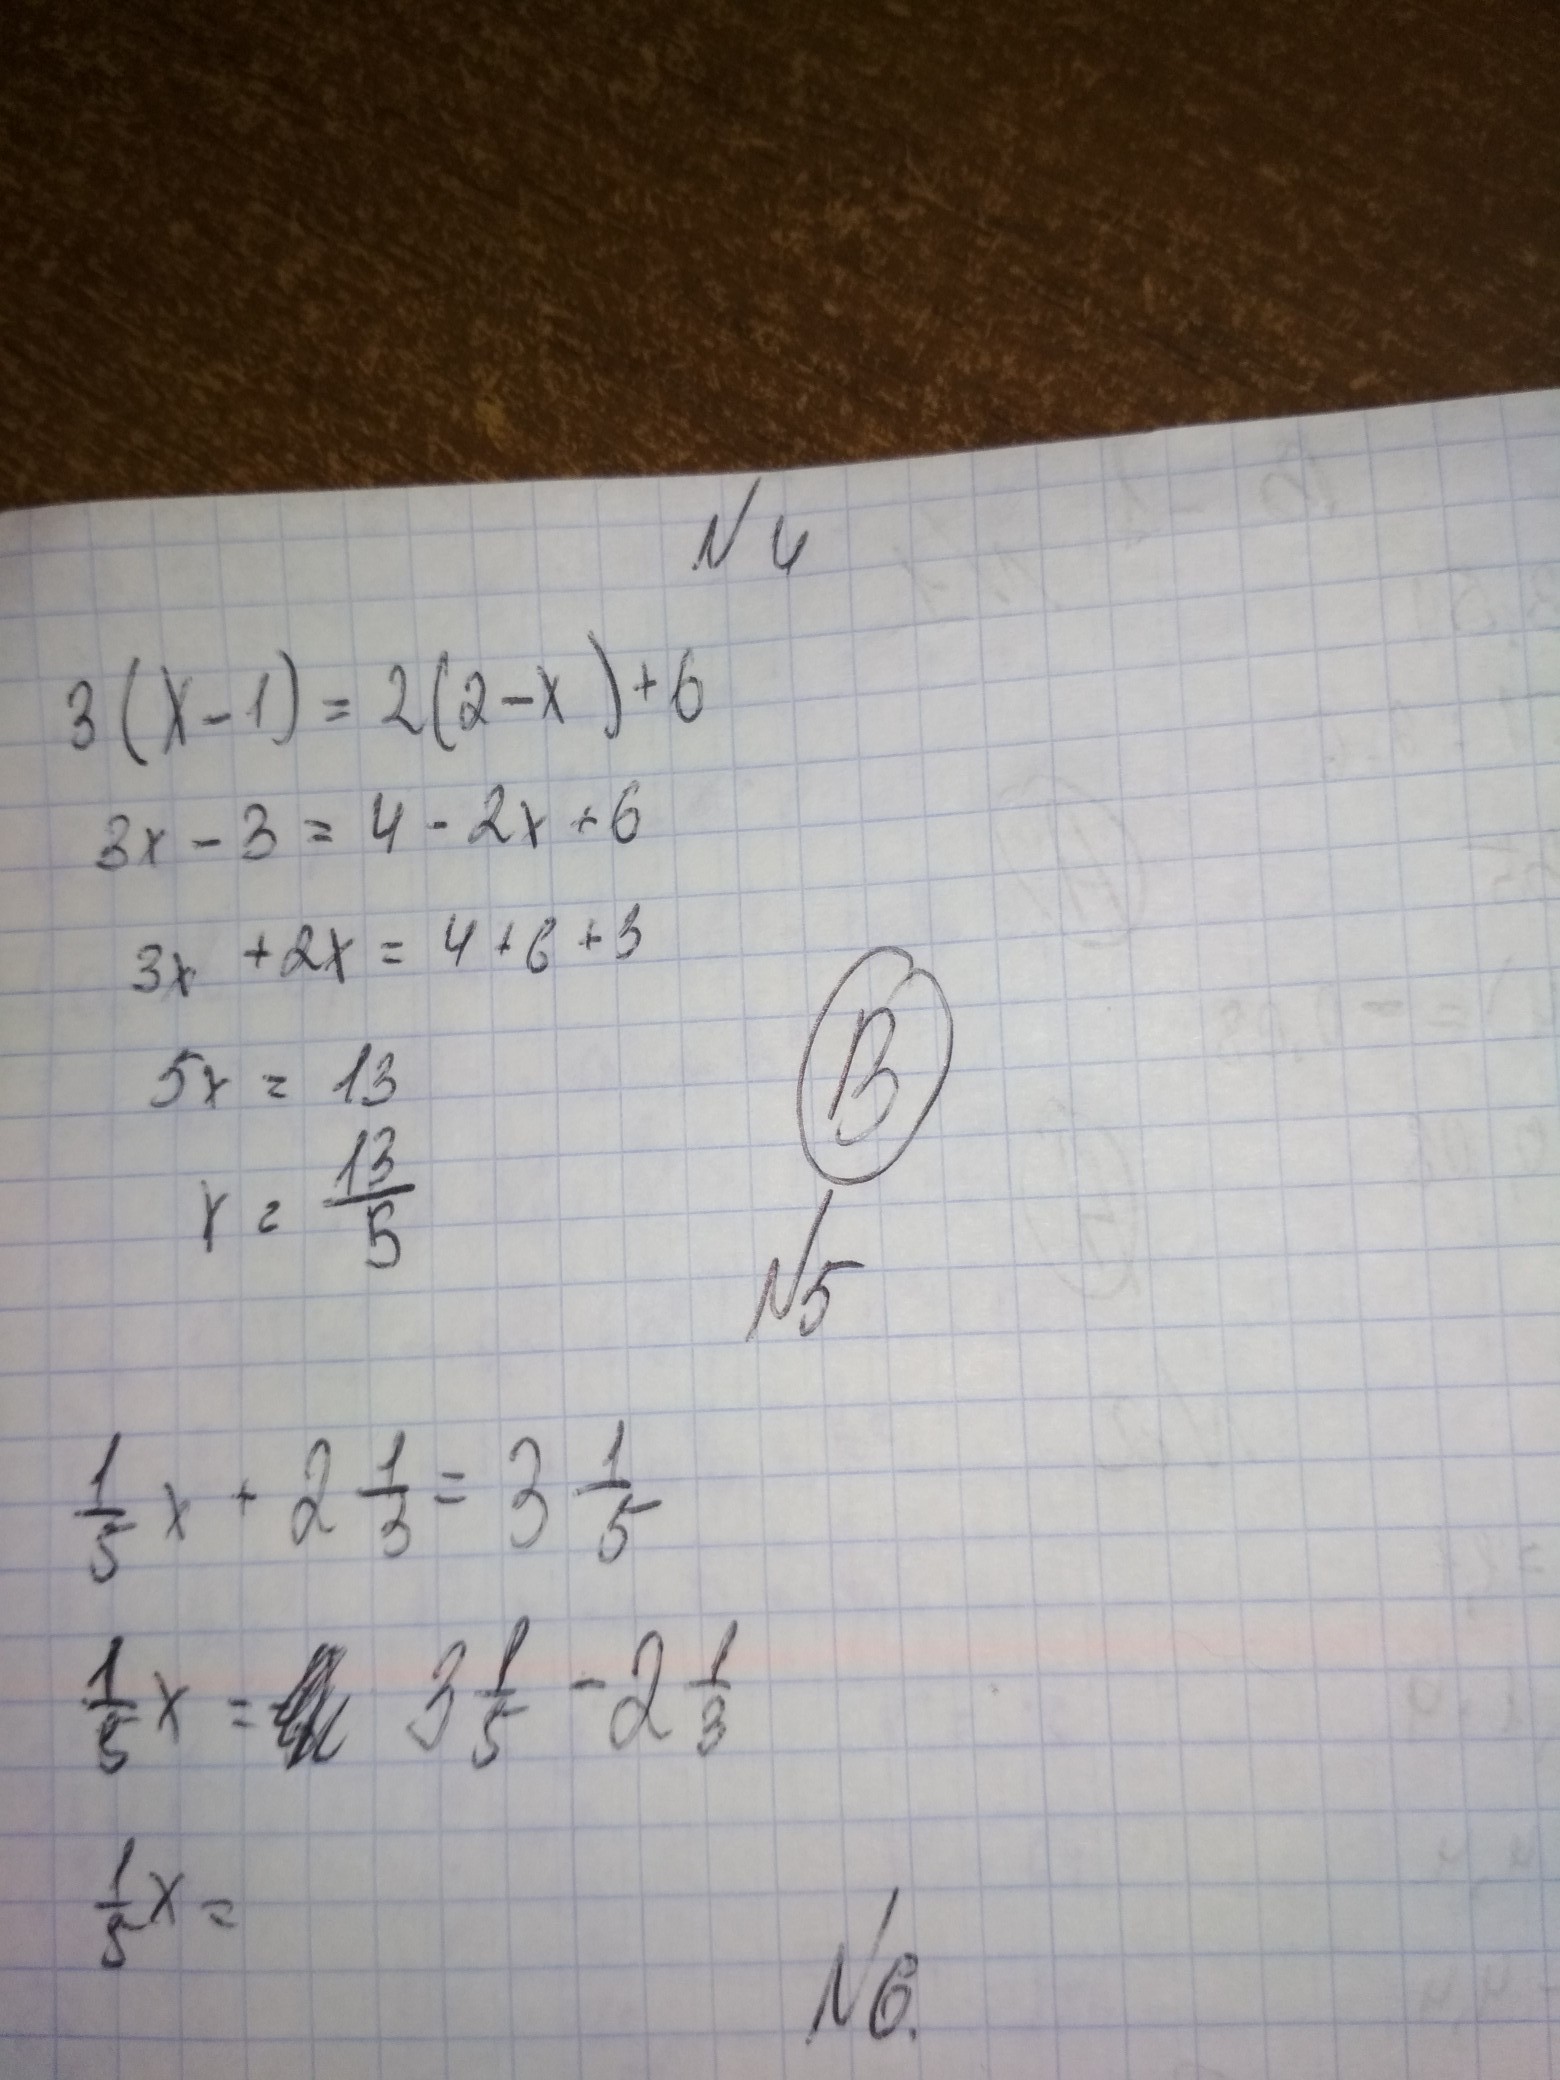 N 4
3(x-1) = 2(2-x)+6
3x - 3 = 4 - 2x + 6
3x + 2x = 4 + 6 + 3
5x = 13
x = 13/5
B
N5
1/5 x + 2 1/3 = 3 1/5
1/5 x = 3 1/5 - 2 1/3
1/5 x =
N6.